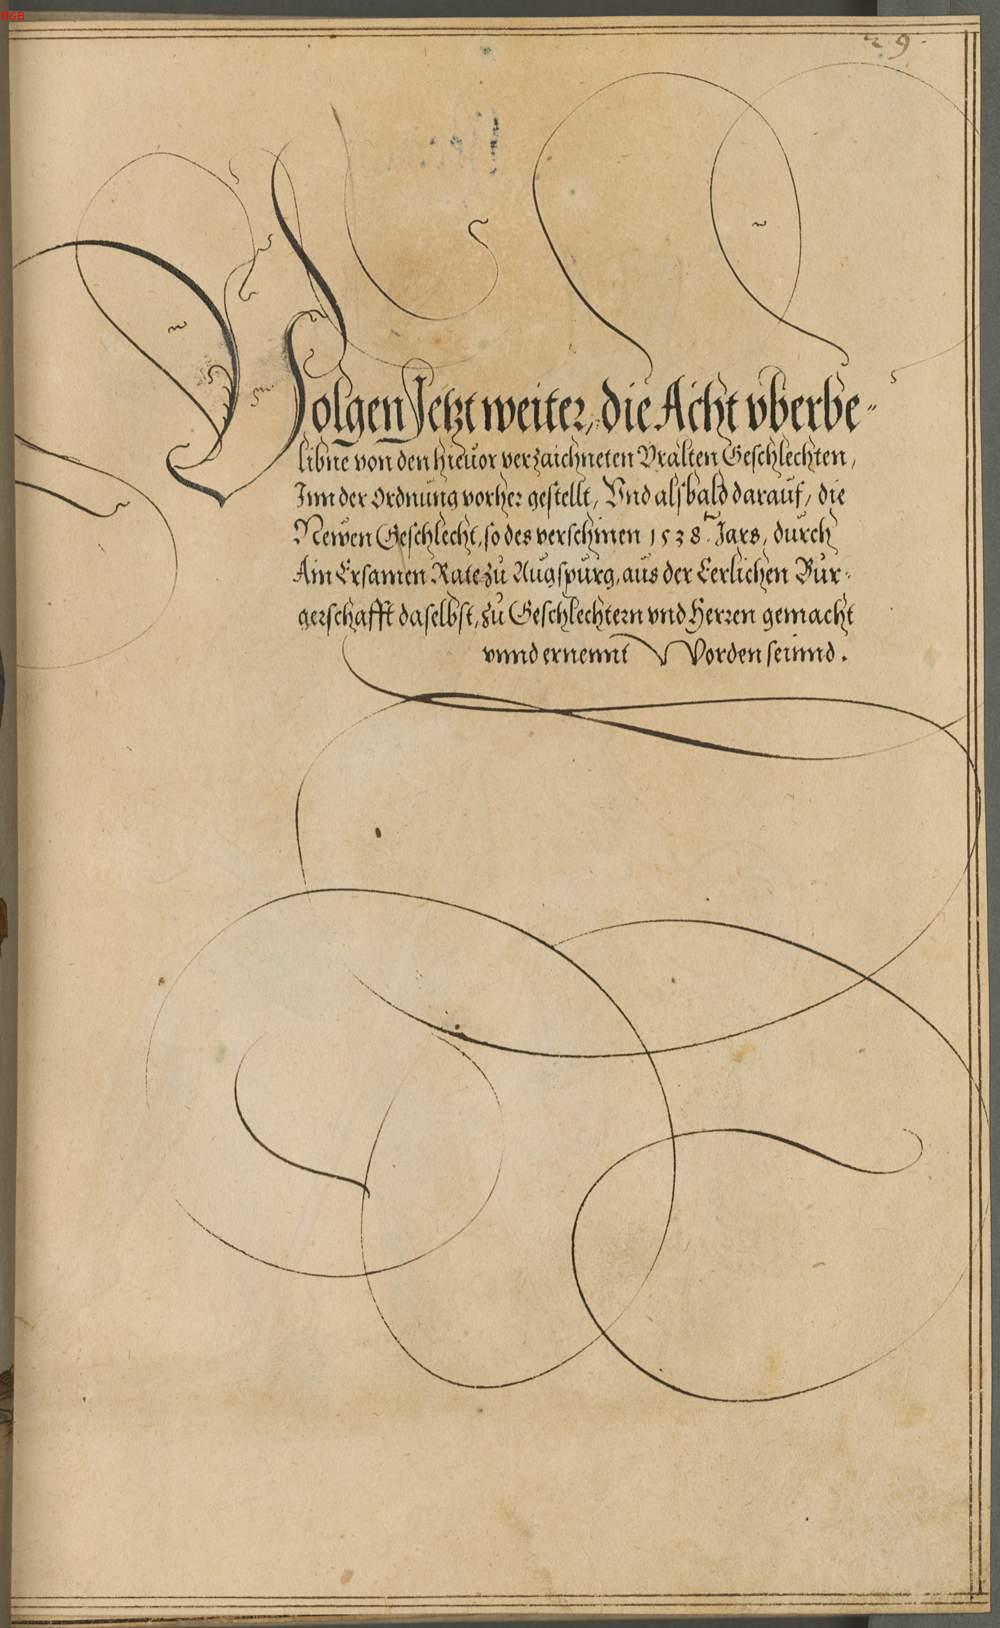 29.
Volgen Jetzt weiter, die Acht vberbe-
libne von den hieuor verzaichneten Vralten Geschlechten,
Inn der Ordnung vorher gestellt, Vnd alsbald darauf, die
Newen Geschlecht, so des verschinen 1538. Jars, durch
Ain Ersamen Rate zu Augspurg, aus der Eerlichen Bur-
gerschafft daselbst, zu Geschlechtern vnd Herren gemacht
vnnd ernennt Worden seinnd.